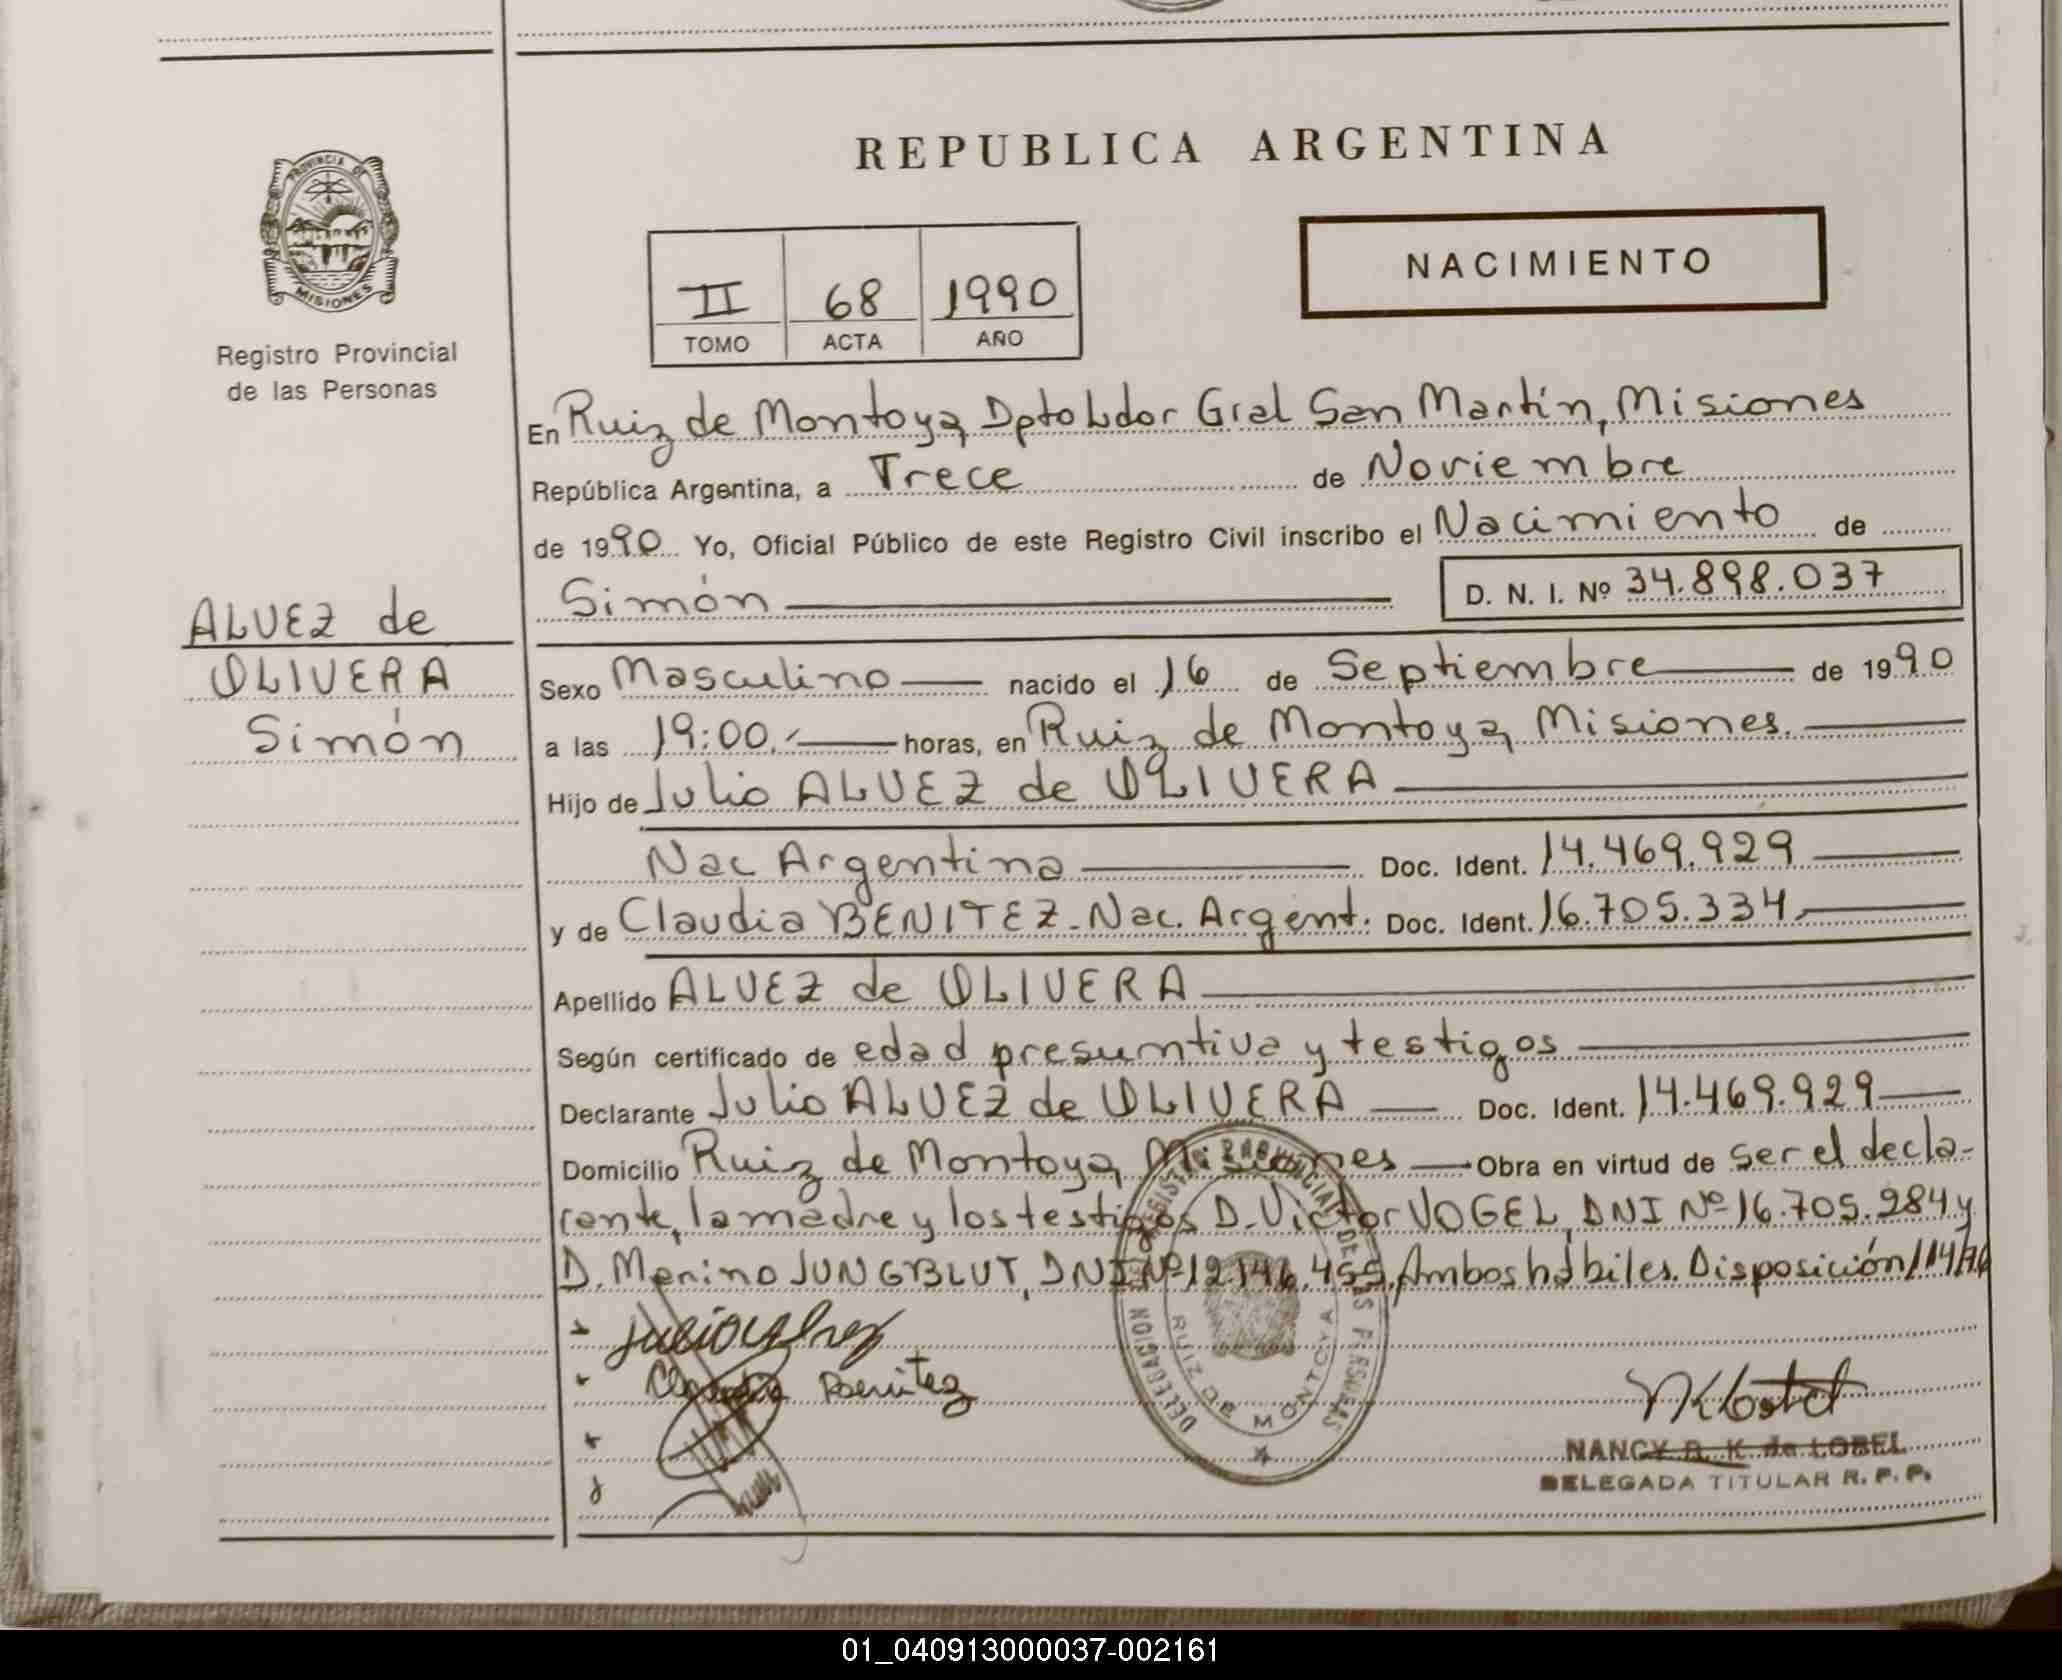 REPUBLICA ARGENTINA
PROVINCIA DE
MISIONES
Registro Provincial
de las Personas
NACIMIENTO
II 68 1990
TOMO ACTA AÑO
En Ruiz de Montoya, Dpto Ldor Gral San Martín, Misiones
República Argentina, a Trece de Noviembre
de 1990 Yo, Oficial Público de este Registro Civil inscribo el Nacimiento de
Simón
D. N. I. Nº 34.898.037
ALVEZ de
OLIVERA
Simón
Sexo Masculino nacido el 16 de Septiembre de 1990
a las 19:00.- horas, en Ruiz de Montoya, Misiones.
Hijo de Julio ALVEZ de OLIVERA
Nac Argentina Doc. Ident. 14.469.929
y de Claudia BENITEZ - Nac. Argent. Doc. Ident. 16.705.334.
Apellido ALVEZ de OLIVERA
Según certificado de edad presuntiva y testigos
Declarante Julio ALVEZ de OLIVERA Doc. Ident. 14.469.929
Domicilio Ruiz de Montoya, Misiones Obra en virtud de ser el decla-
rante, la madre y los testigos D. Victor VOGEL, DNI Nº 16.705.284 y
D. Menino JUNGBLUT, DNI Nº 12.146.455. Ambos hábiles. Disposición 114/76
Claudia Benítez
REGISTRO PROVINCIAL DE LAS PERSONAS
DELEGACION
RUIZ DE MONTOYA
NANCY R. K. de LOBEL
DELEGADA TITULAR R. P. P.
01_040913000037-002161